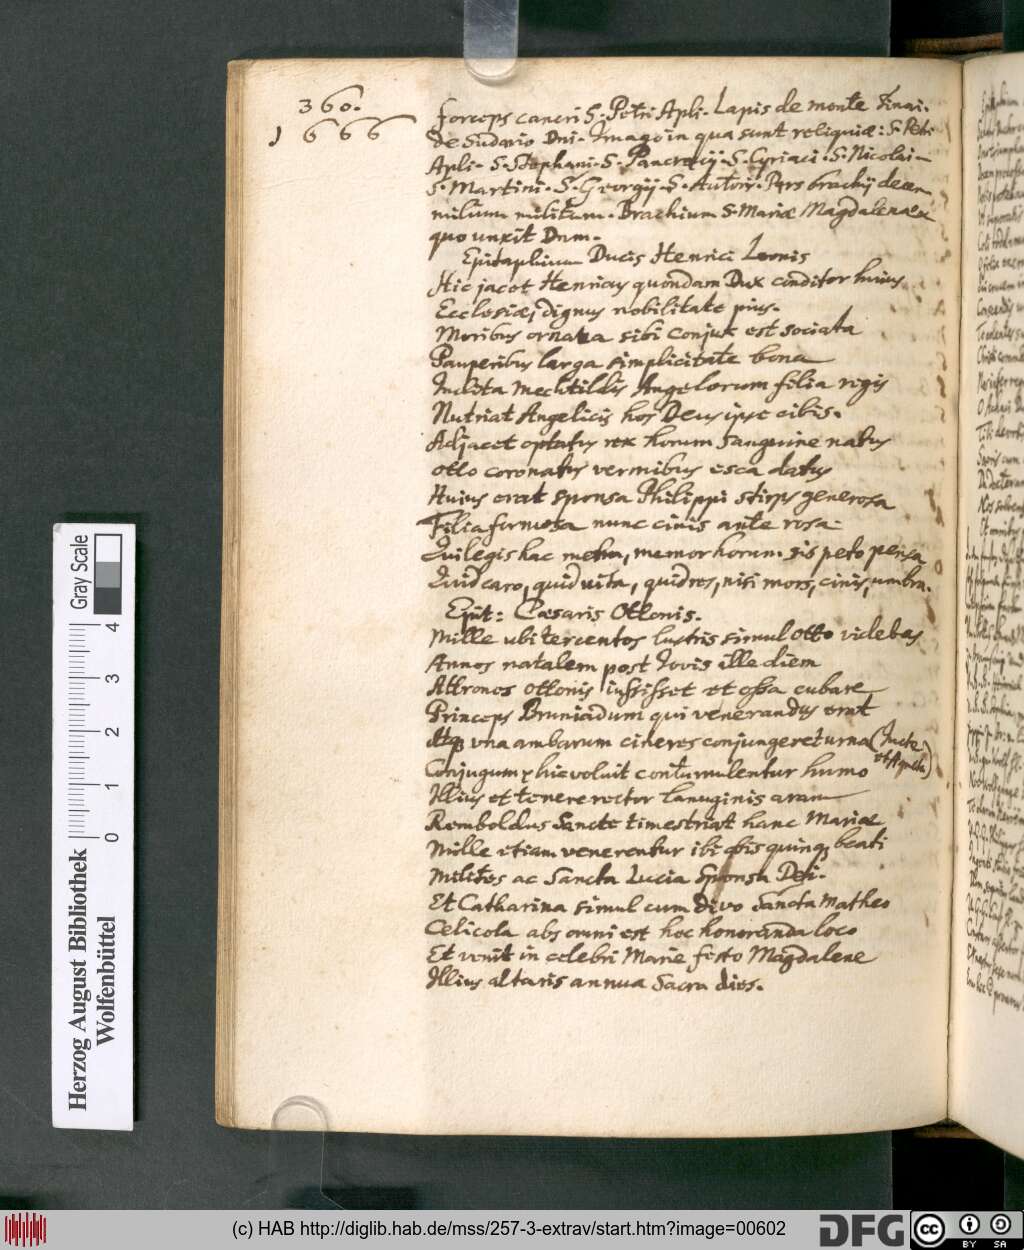 360.
1666
forceps cancri S. Petri Apli. Lapis de monte Sinai.
de Sudario Dni. Imago in qua sunt reliquiæ: S. Petri
Apli. S. Stephani. S. Pancracij. S. Cyriaci. S. Nicolai
S. Martini. S. Georgij. S. Autorij. Pars brachij decem
milium militum. Brachium S. Mariæ Magdalenæ
quo unxit Dnm.
Epitaphium Ducis Henrici Leonis
Hic jacet Henricus quondam Dux conditor huius
Ecclesiæ, dignus nobilitate pius.
Moribus ornata sibi conjux est sociata
Pauperibus larga simplicitate bona
Inclita Mechtildis Angelorum filia regis
Nutriat Angelicis hos Deus ipse cibis.
Adjacet optatus rex horum Sanguine natus
Otto coronatus vermibus esca datus
Huius erat sponsa Philippi stirps generosa
Filia formosa nunc cinis ante rosa
Qui legis hac metra, memor horum sis peto pensa
Quid caro, quid vita, quid res, nisi mors, cinis, umbra.
Epit: Cæsaris Ottonis.
Mille ubi tercentos lustris simul Otto videbas
Annos natalem post Jovis ille diem
Attronos Ottonis iussisset et ossa cubare
Princeps Bruniadum qui venerandus erat
Atq vna ambarum cineres conjungeret urna (Jutte
et Agneta)
Conjugum, hic voluit contumulentur humo
Illius et tenere rector lanuginis aram
Remboldus Sancte timestriat hanc Mariæ
Mille etiam venerentur ibi quinq beati
Milites ac Sancta Lucia Sponsa Dei.
Et Catharina simul cum divo Sancta Matheo
Celicola abs omni est hoc honoranda loco
Et venit in celebri Marie festo Magdalene
Illius altaris annua Sacra dies.
Herzog August Bibliothek
Wolfenbüttel
Gray Scale
0 1 2 3 4
(c) HAB http://diglib.hab.de/mss/257-3-extrav/start.htm?image=00602
DFG
cc BY SA